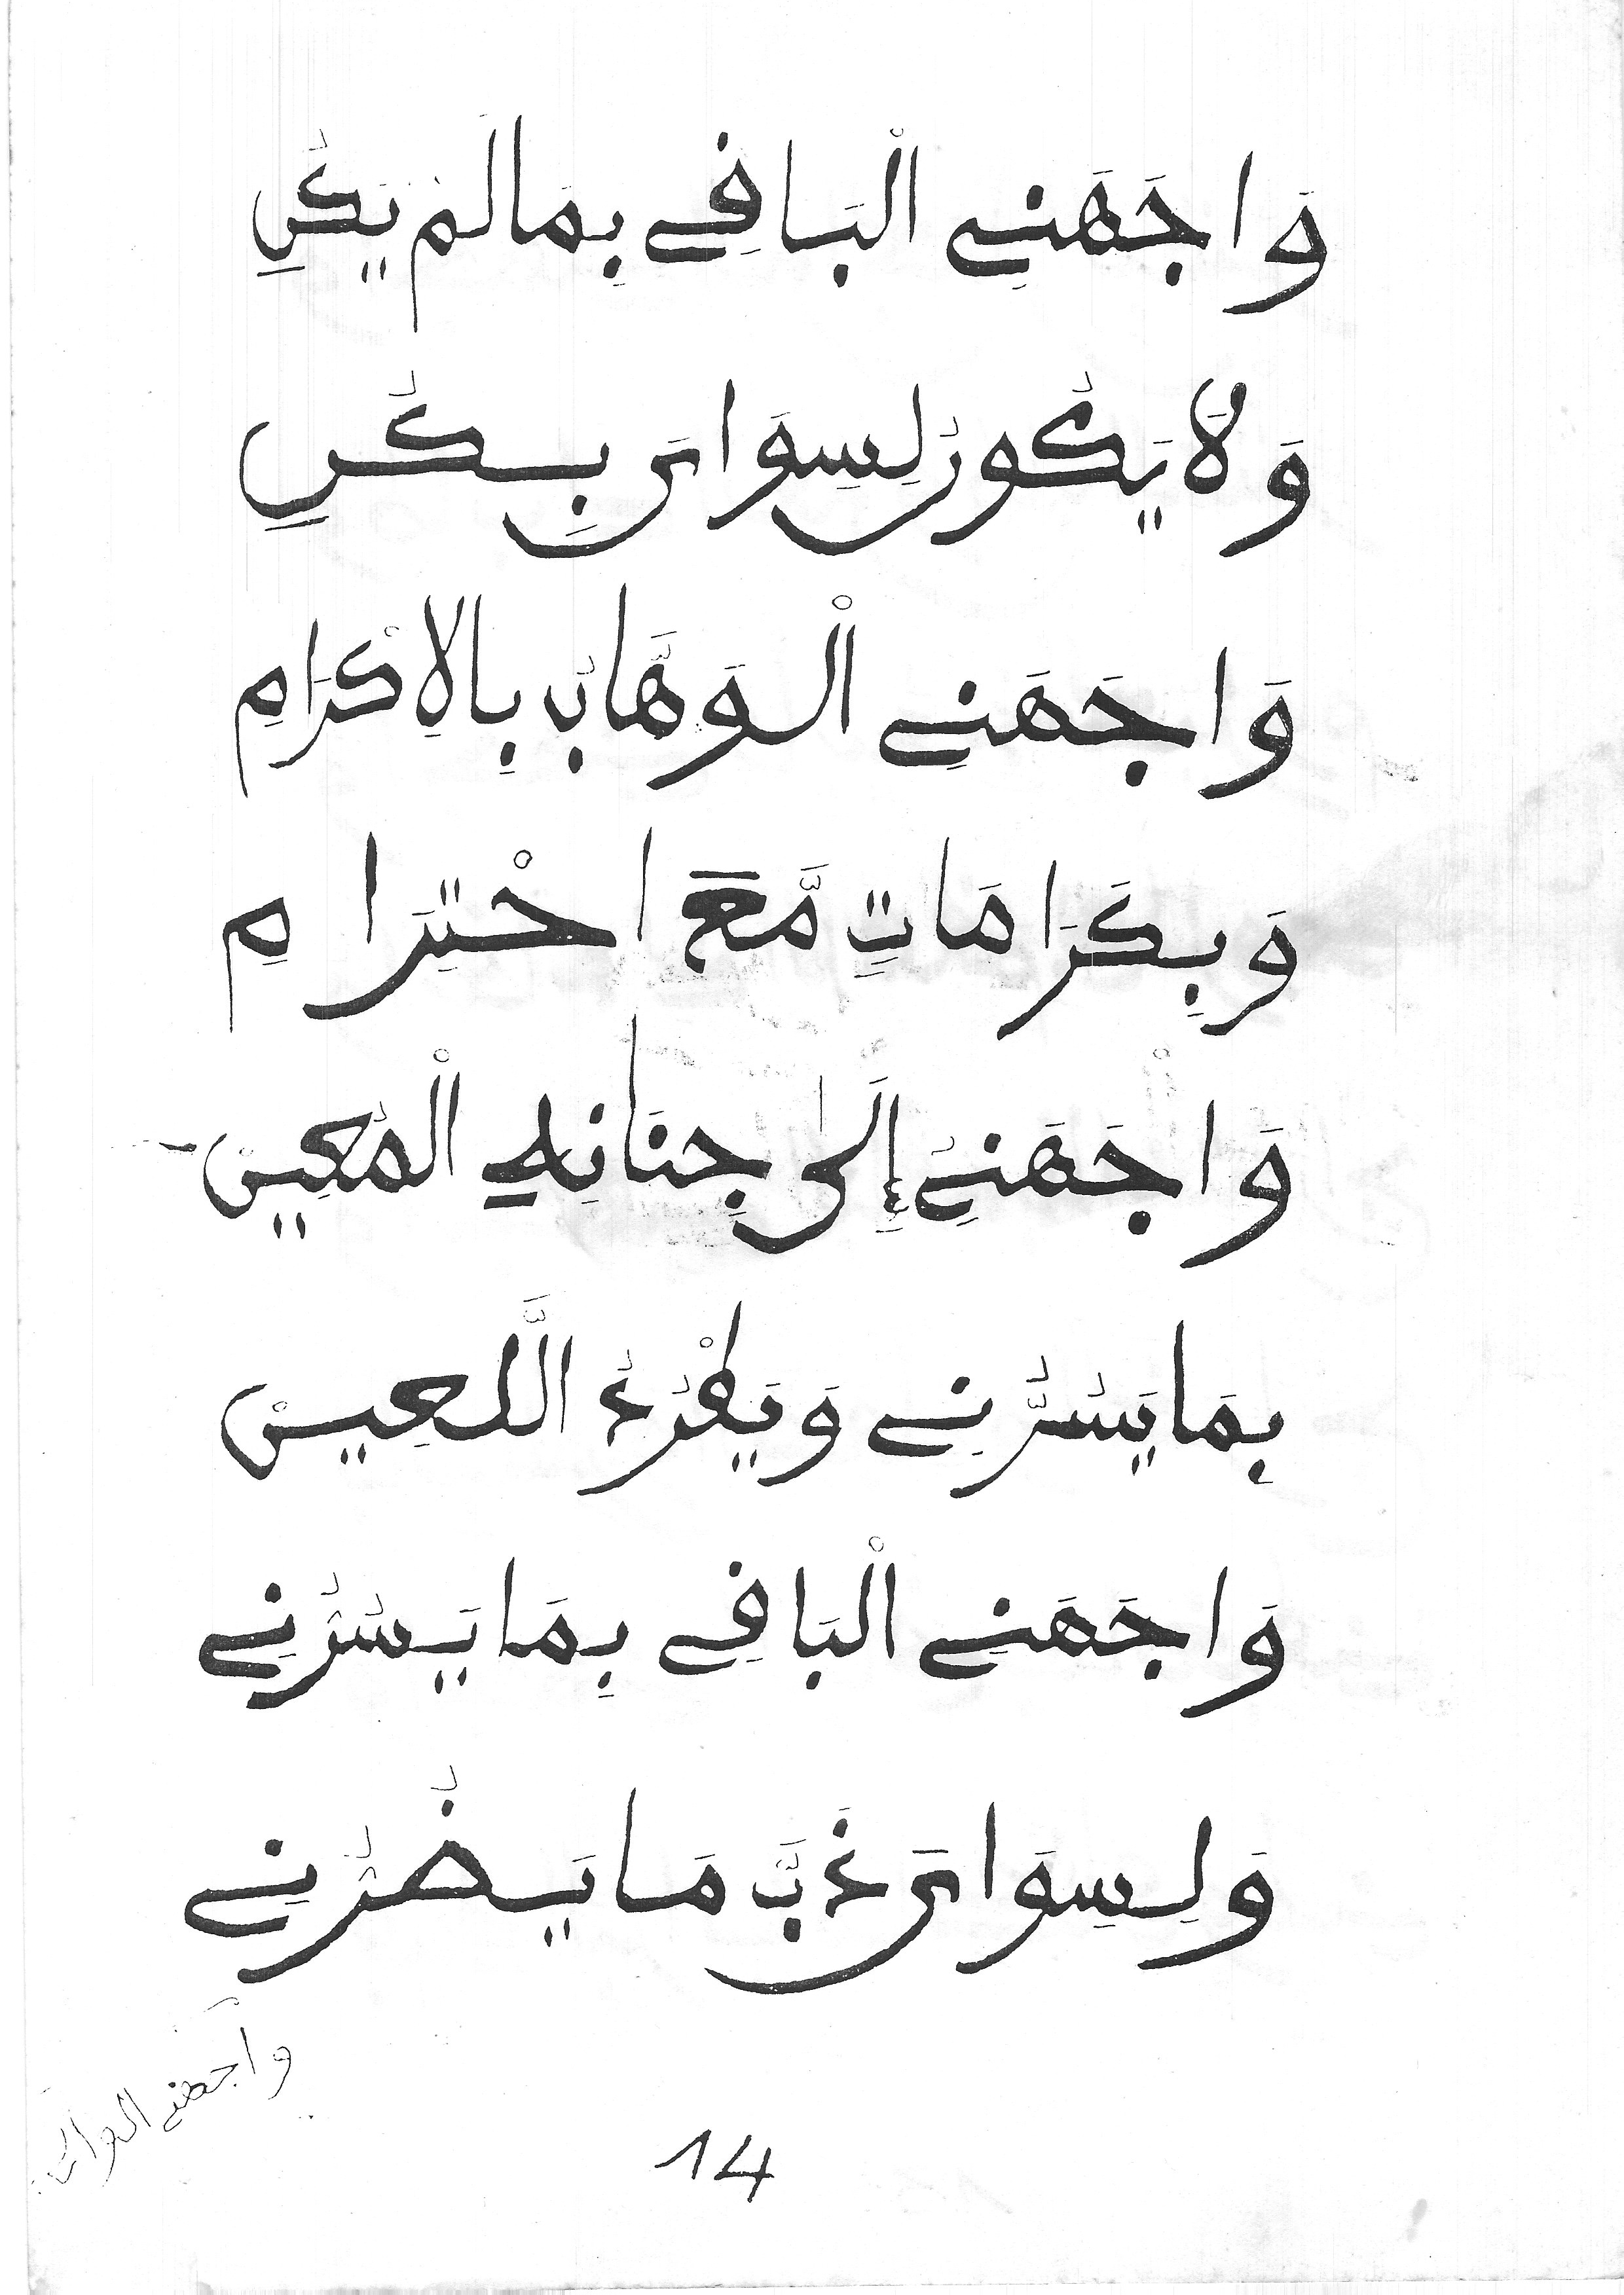 وَاجَهَنِي الْبَاقِي بِمَا لَمْ يَكُنِ
وَلَا يَكُونُ لِسِوَايَ بِكُنِ
وَاجَهَنِي الْوَهَّابُ بِالِاكْرَامِ
وَبِكَرَامَاتٍ مَّعَ احْتِرَامِ
وَاجَهَنِي إِلَى جِنَانِهِ الْمُعِينْ
بِمَا يَسُرُّنِي وَيَطْرُدُ اللَّعِينْ
وَاجَهَنِي الْبَاقِي بِمَا يَسُرُّنِي
وَلِسِوَايَ ذَبَّ مَا يَضُرُّنِي
واجهني
14